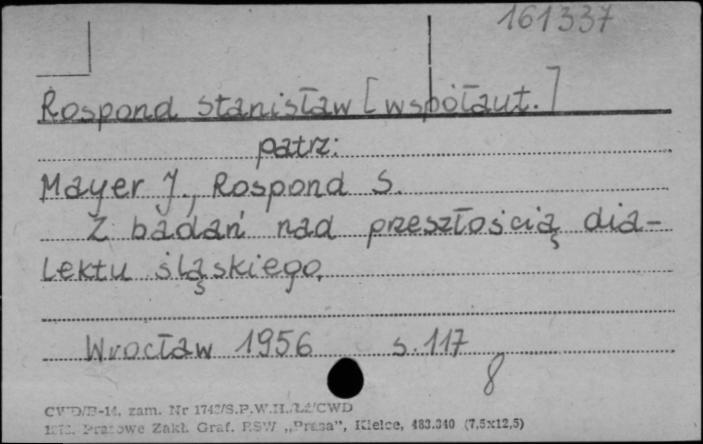 161337
Rospond Stanisław [współaut.]
patrz:
Mayer J., Rospond S.
Z badań nad przeszłością dia-
lektu śląskiego.
Wrocław 1956 s. 117
8
CWD/B-14. zam. Nr
Zakł. Graf. RSW „Prasa”, Kielce, 483.340 (7,5x12,5)